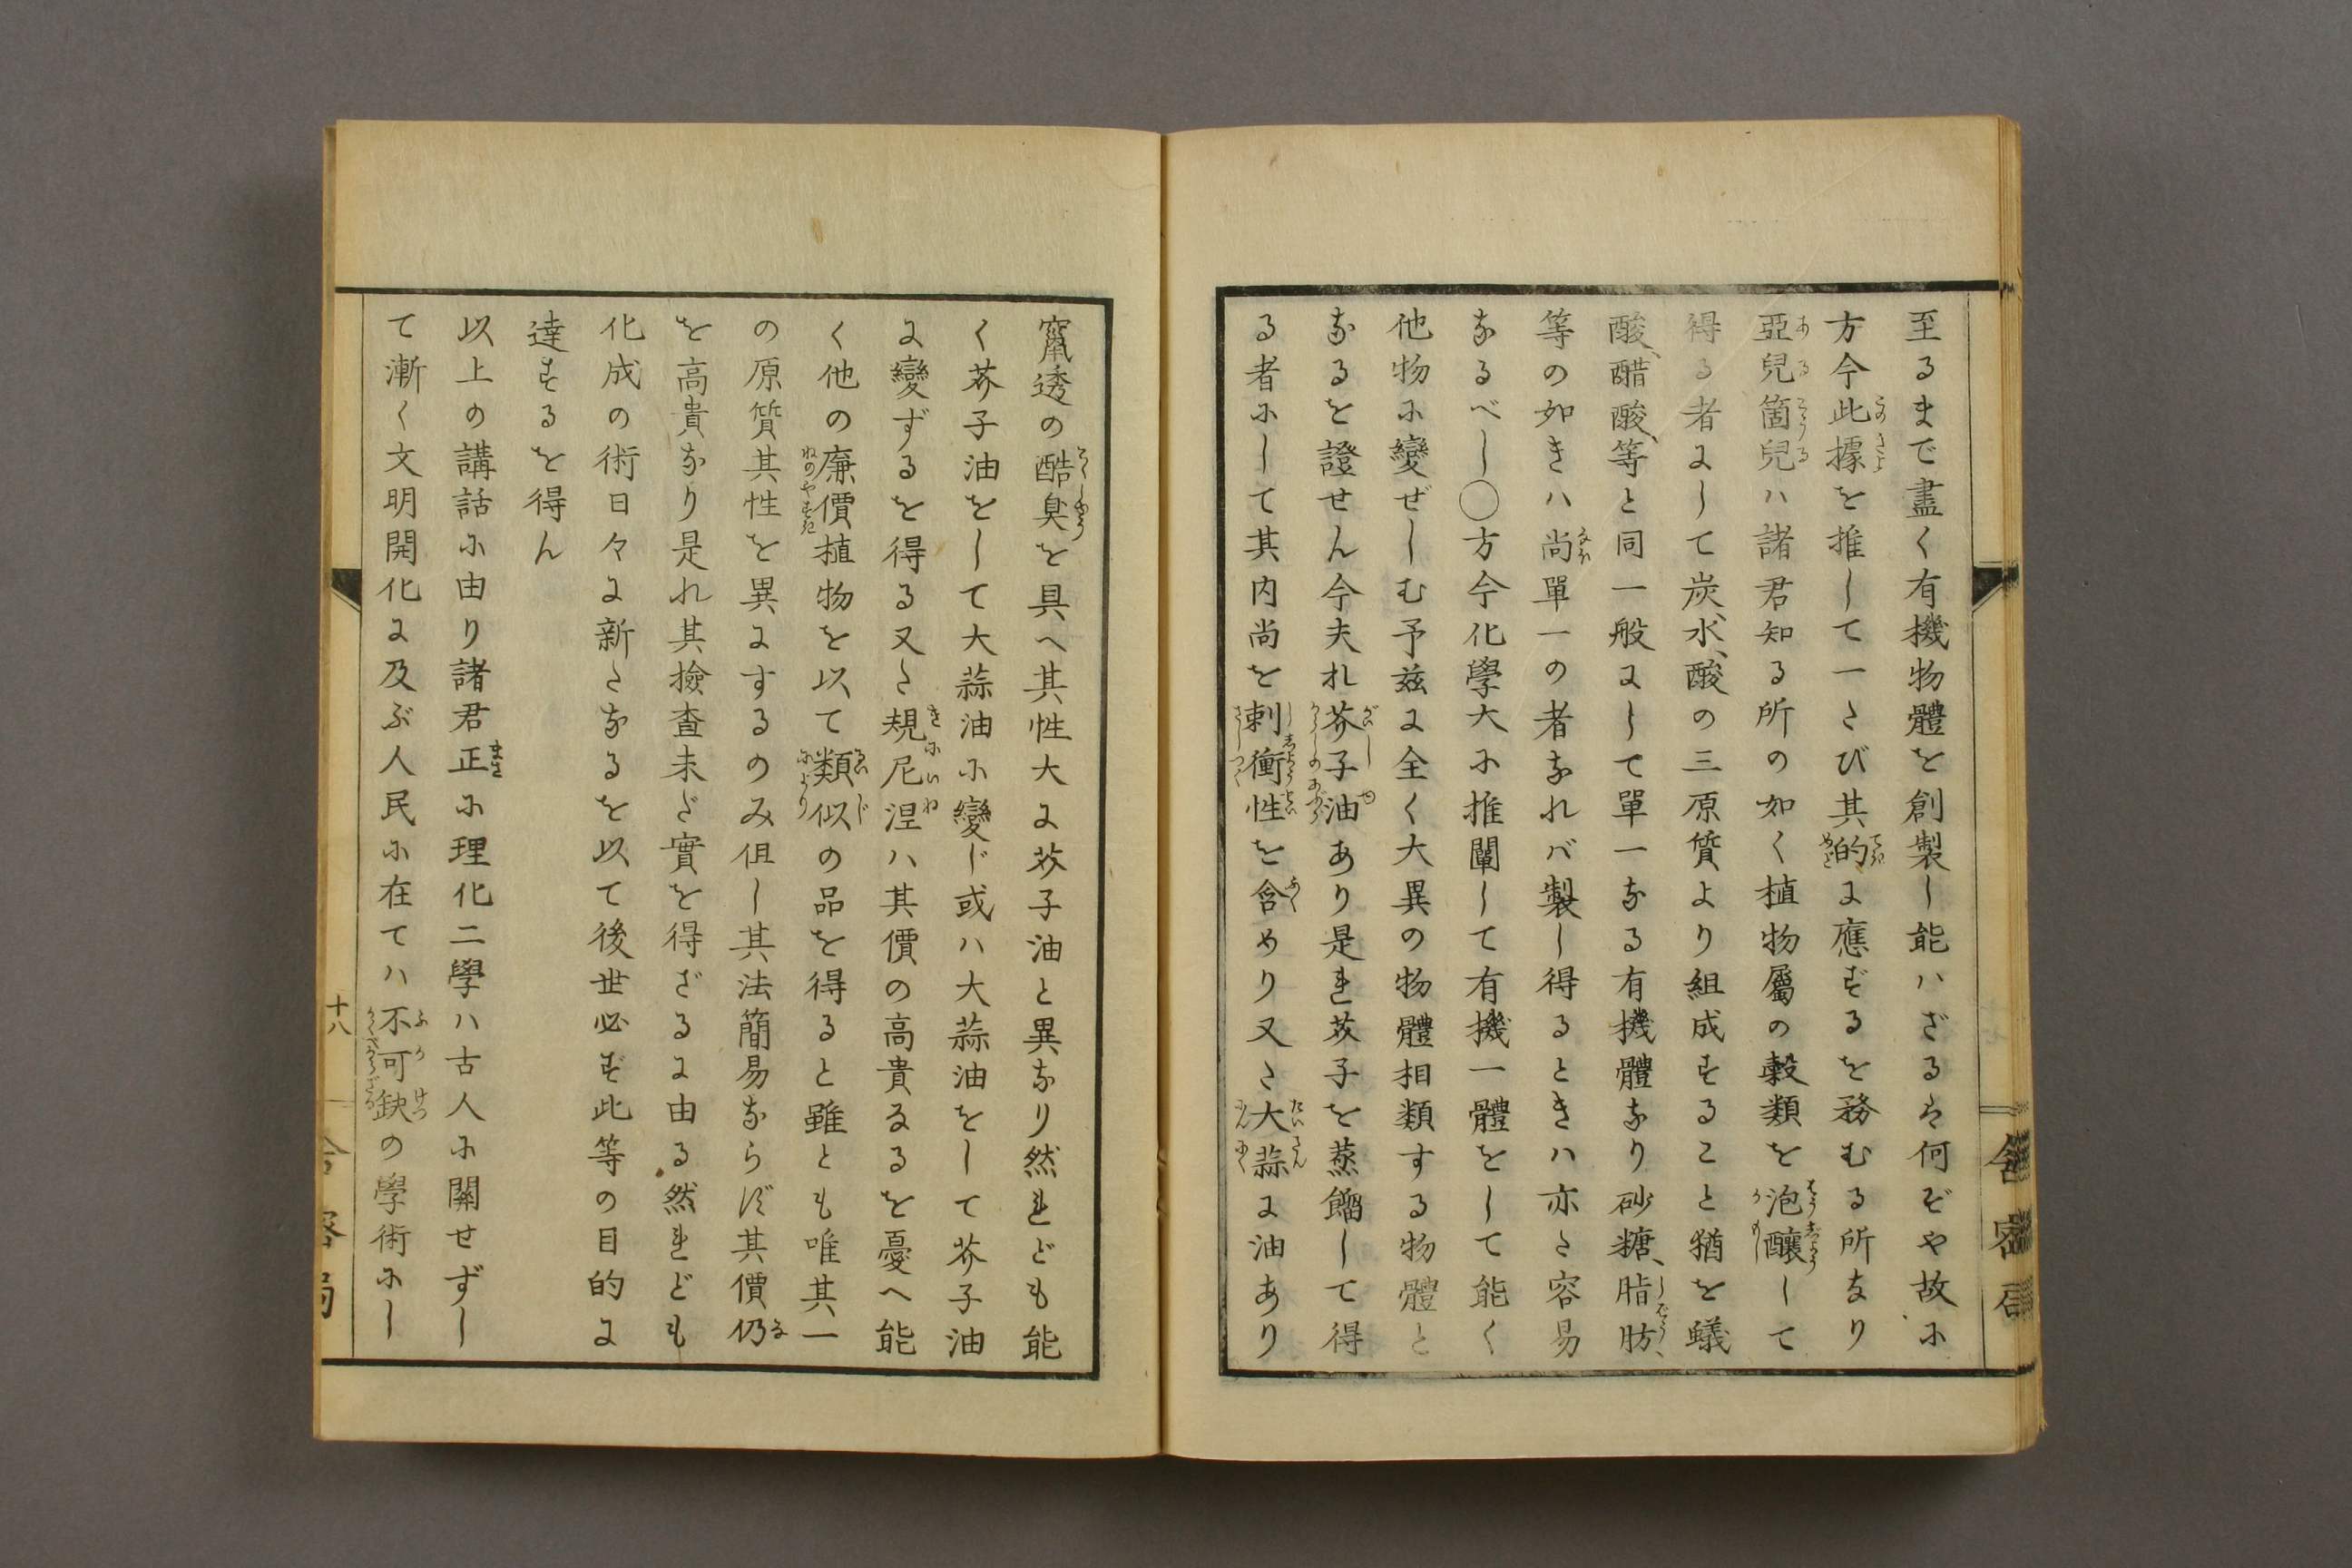 至るまで盡く有機物體を創製し能ハざるは何ぞや故に
方今此據を推して一たび其的に應ずるを務むる所なり
亞兒箇兒ハ諸君知る所の如く植物屬の穀類を泡釀して
得る者にして炭、水、酸の三原質より組成することと猶を蟻
酸、醋酸、等と同一般にして單一なる有機體なり砂糖、脂肪、
等の如きハ尚單一の者なれバ製し得るときハ亦た容易
なるべし〇方今化學大に推闡して有機一體をして能く
他物に變ぜしむ予茲に全く大異の物體相類する物體と
なるを證せん今夫れ芥子油あり是れ芥子を蒸餾して得
る者にして其内尚を刺衝性を含めり又た大蒜に油あり
竄透の酷臭を具へ其性大に芥子油と異なり然れども能
く芥子油をして大蒜油に變じ或ハ大蒜油をして芥子油
に變ずるを得る又た規尼涅ハ其價の高貴なるを憂へ能
く他の廉價植物を以て類似の品を得ると雖とも唯其一
の原質其性を異にするのみ但し其法簡易ならず其價仍
を高貴なり是れ其撿査未だ實を得ざるに由る然れども
化成の術日々に新たなるを以て後世必ず此等の目的に
達するを得ん
以上の講話に由り諸君正に理化二學ハ古人に關せずし
て漸く文明開化に及ぶ人民に在てハ不可缺の學術にし
十八